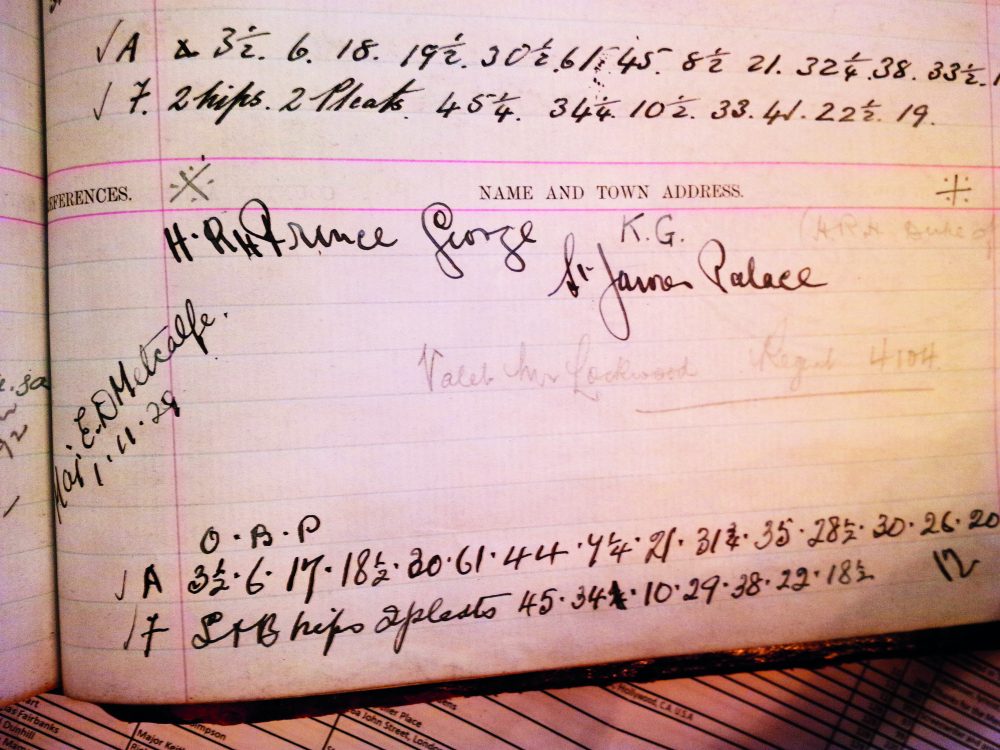 √ A 3½. 6. 18. 19½. 30½. 61 45. 8½ 21. 32¼. 38. 33½.
√ 7. 2 hips. 2 Pleats. 45¼. 34¼ 10½. 33. 41. 22½. 19.
EFERENCES. NAME AND TOWN ADDRESS.
H.R.H Prince George K.G. (H.R.H Duke of
St James Palace
Valet Mr Lockwood Regent 4104.
Maj. E.D Metcalfe.
1.11.28
O.B.P
√ A 3½. 6. 17. 18½. 30. 61. 44. 7¼. 21. 31¾. 35. 28½. 30. 26. 20
√ 7 S & B hips 2 pleats 45. 34 . 10. 29. 38. 22. 18½ 12
Fairbanks
Dunhill
Simpson
Major Keith
Place
John Street, London
Hollywood, CA USA